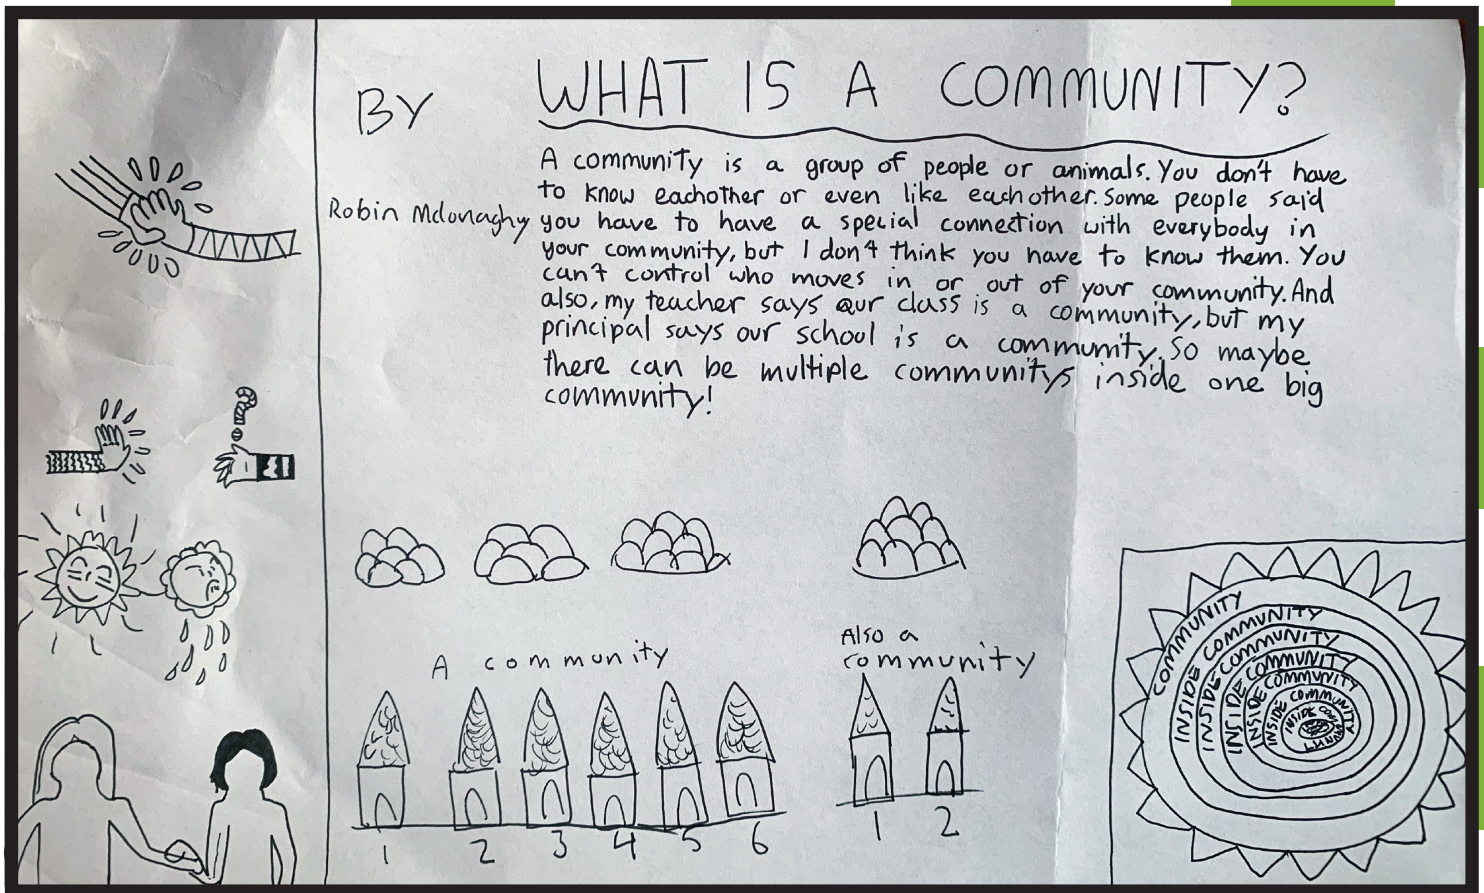 WHAT IS A COMMUNITY?
BY
Robin Mclonaghy
A community is a group of people or animals. You don't have
to know eachother or even like eachother. Some people said
you have to have a special connection with everybody in
your community, but I don't think you have to know them. You
can't control who moves in or out of your community. And
also, my teacher says our class is a community, but my
principal says our school is a community. So maybe
there can be multiple communitys inside one big
community!
A community
Also a
community
1 2 3 4 5 6
1 2
COMMUNITY
INSIDE COMMUNITY
INSIDE COMMUNITY
INSIDE COMMUNITY
INSIDE COMMUNITY
INSIDE COMMUNITY
INSIDE